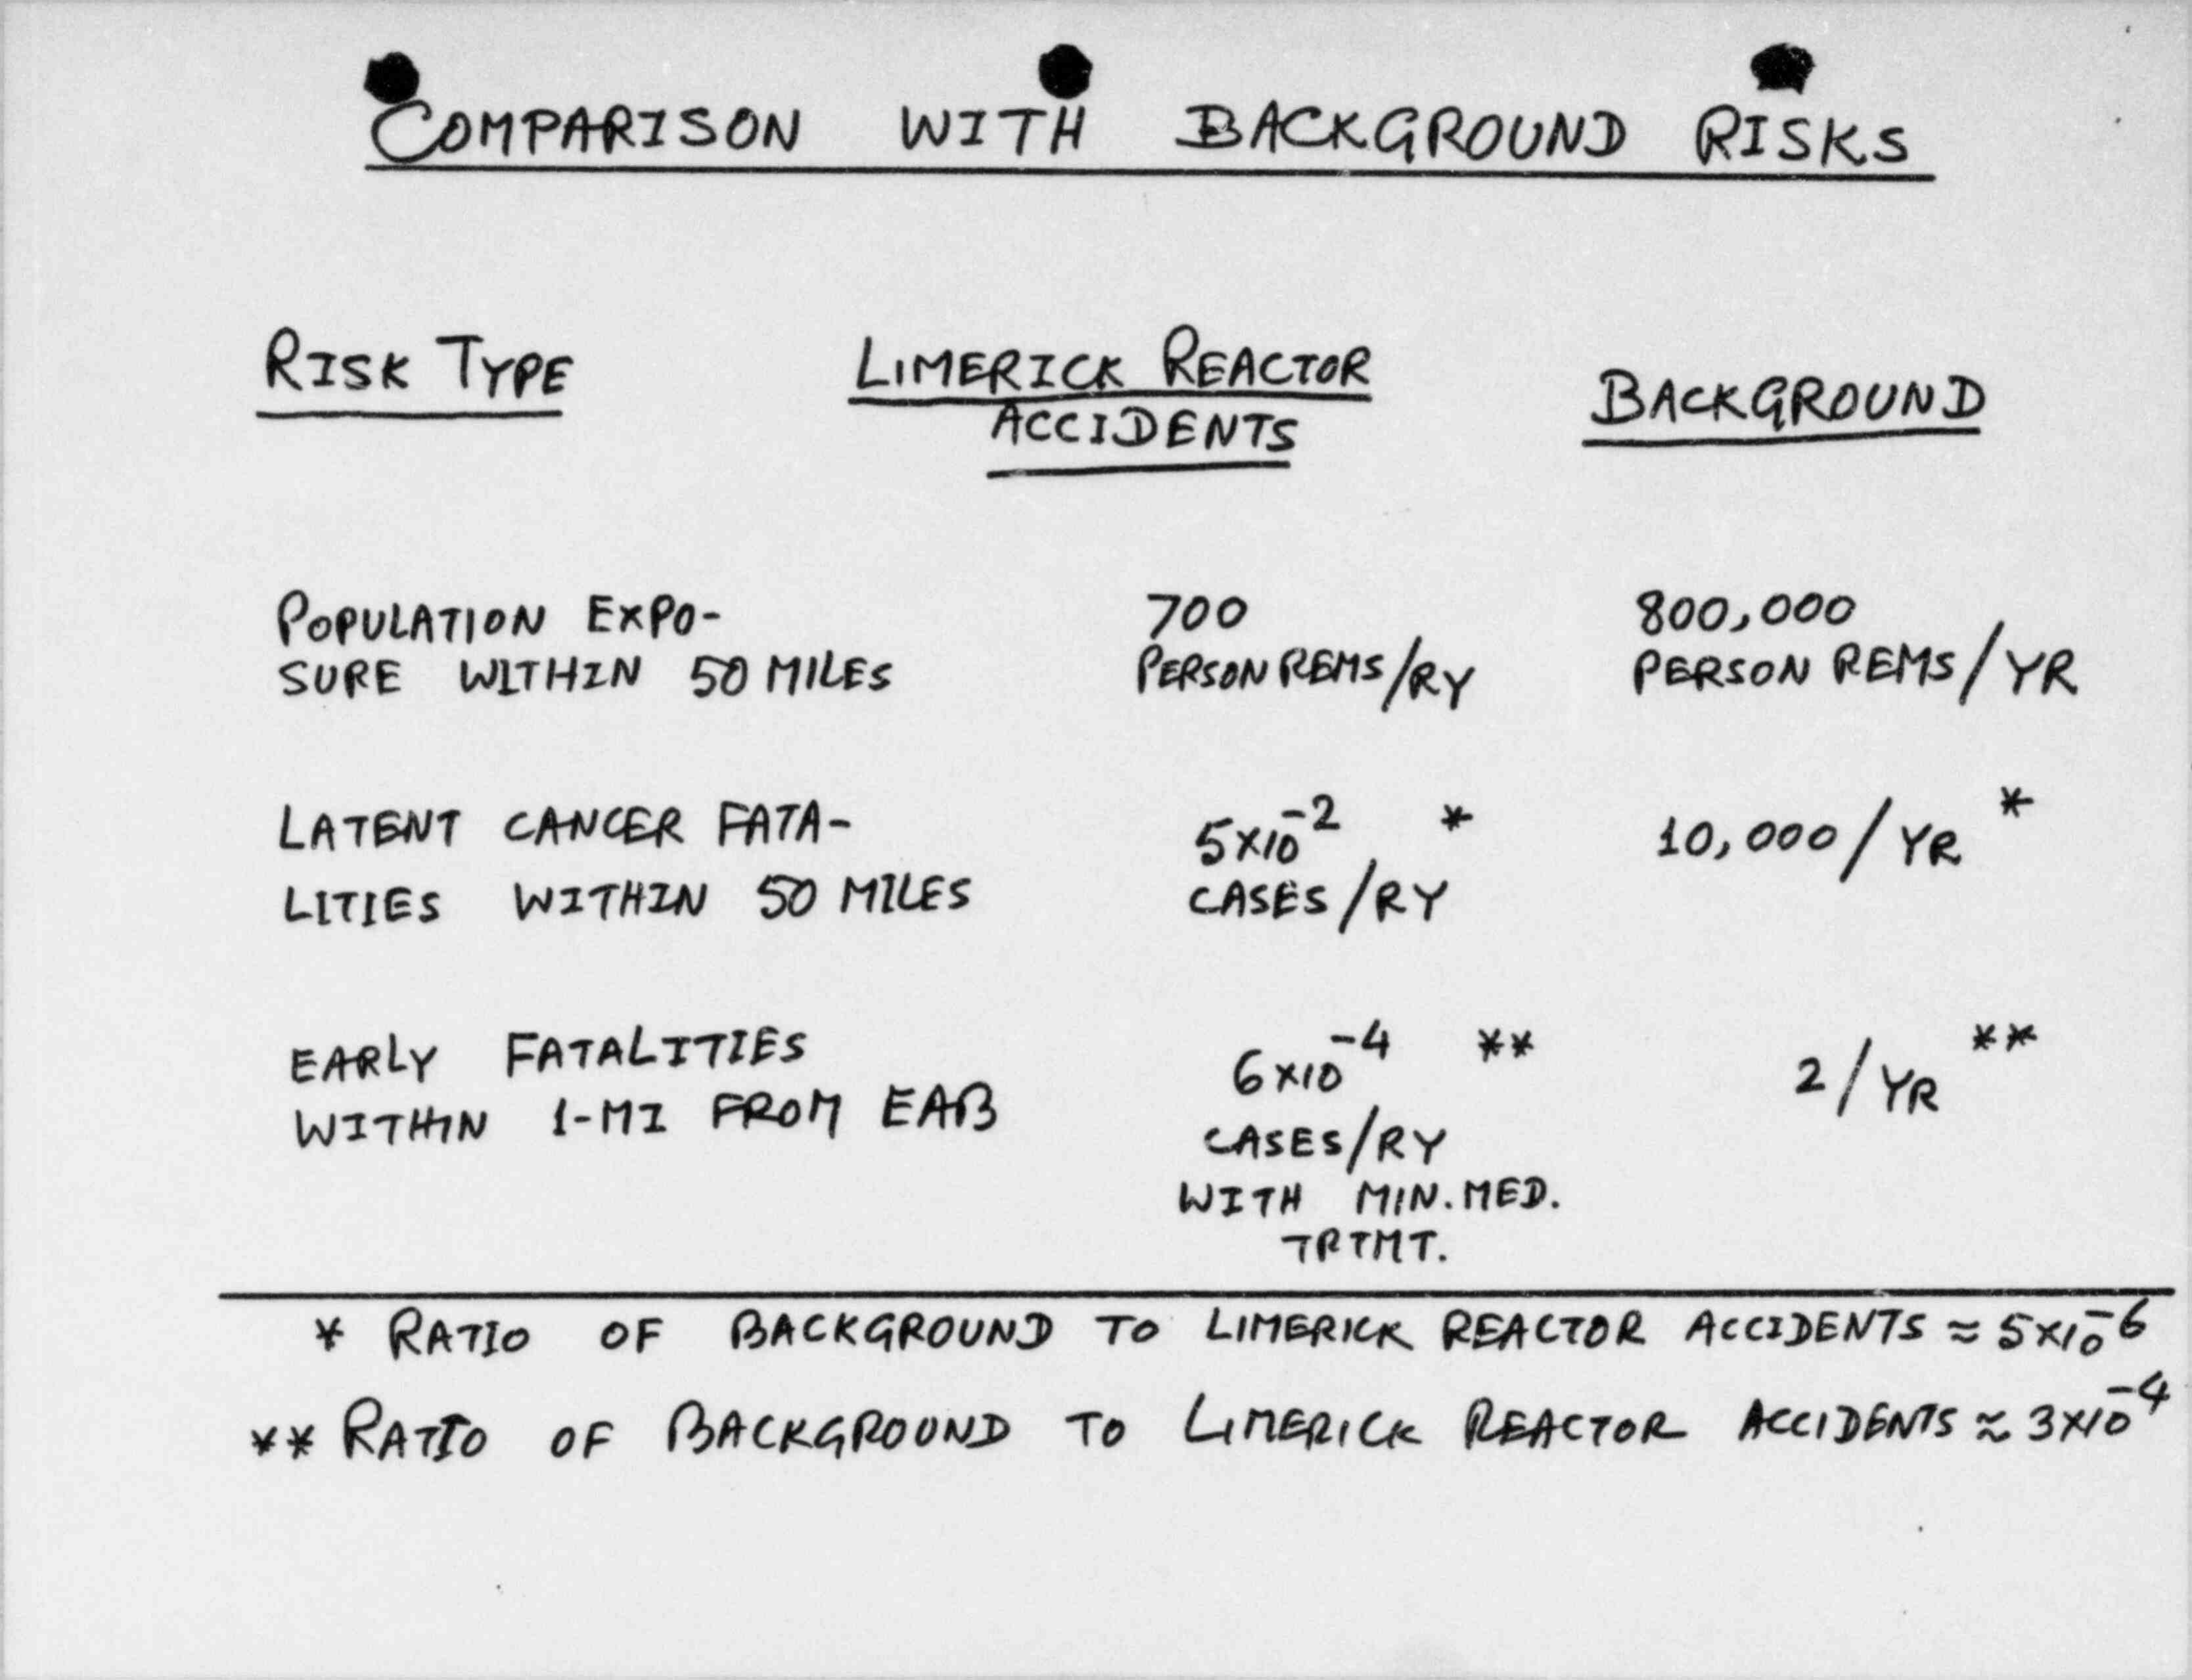 COMPARISON WITH BACKGROUND RISKS
RISK TYPE
LIMERICK REACTOR
ACCIDENTS
BACKGROUND
POPULATION EXPO-
SURE WITHIN 50 MILES
700
PERSON REMS/RY
800,000
PERSON REMS/YR
LATENT CANCER FATA-
LITIES WITHIN 50 MILES
5x10⁻² *
CASES/RY
10,000/YR *
EARLY FATALITIES
WITHIN 1-MI FROM EAB
6x10⁻⁴ **
CASES/RY
WITH MIN. MED.
TRTMT.
2/YR **
* RATIO OF BACKGROUND TO LIMERICK REACTOR ACCIDENTS ≈ 5x10⁻⁶
** RATIO OF BACKGROUND TO LIMERICK REACTOR ACCIDENTS ≈ 3x10⁻⁴